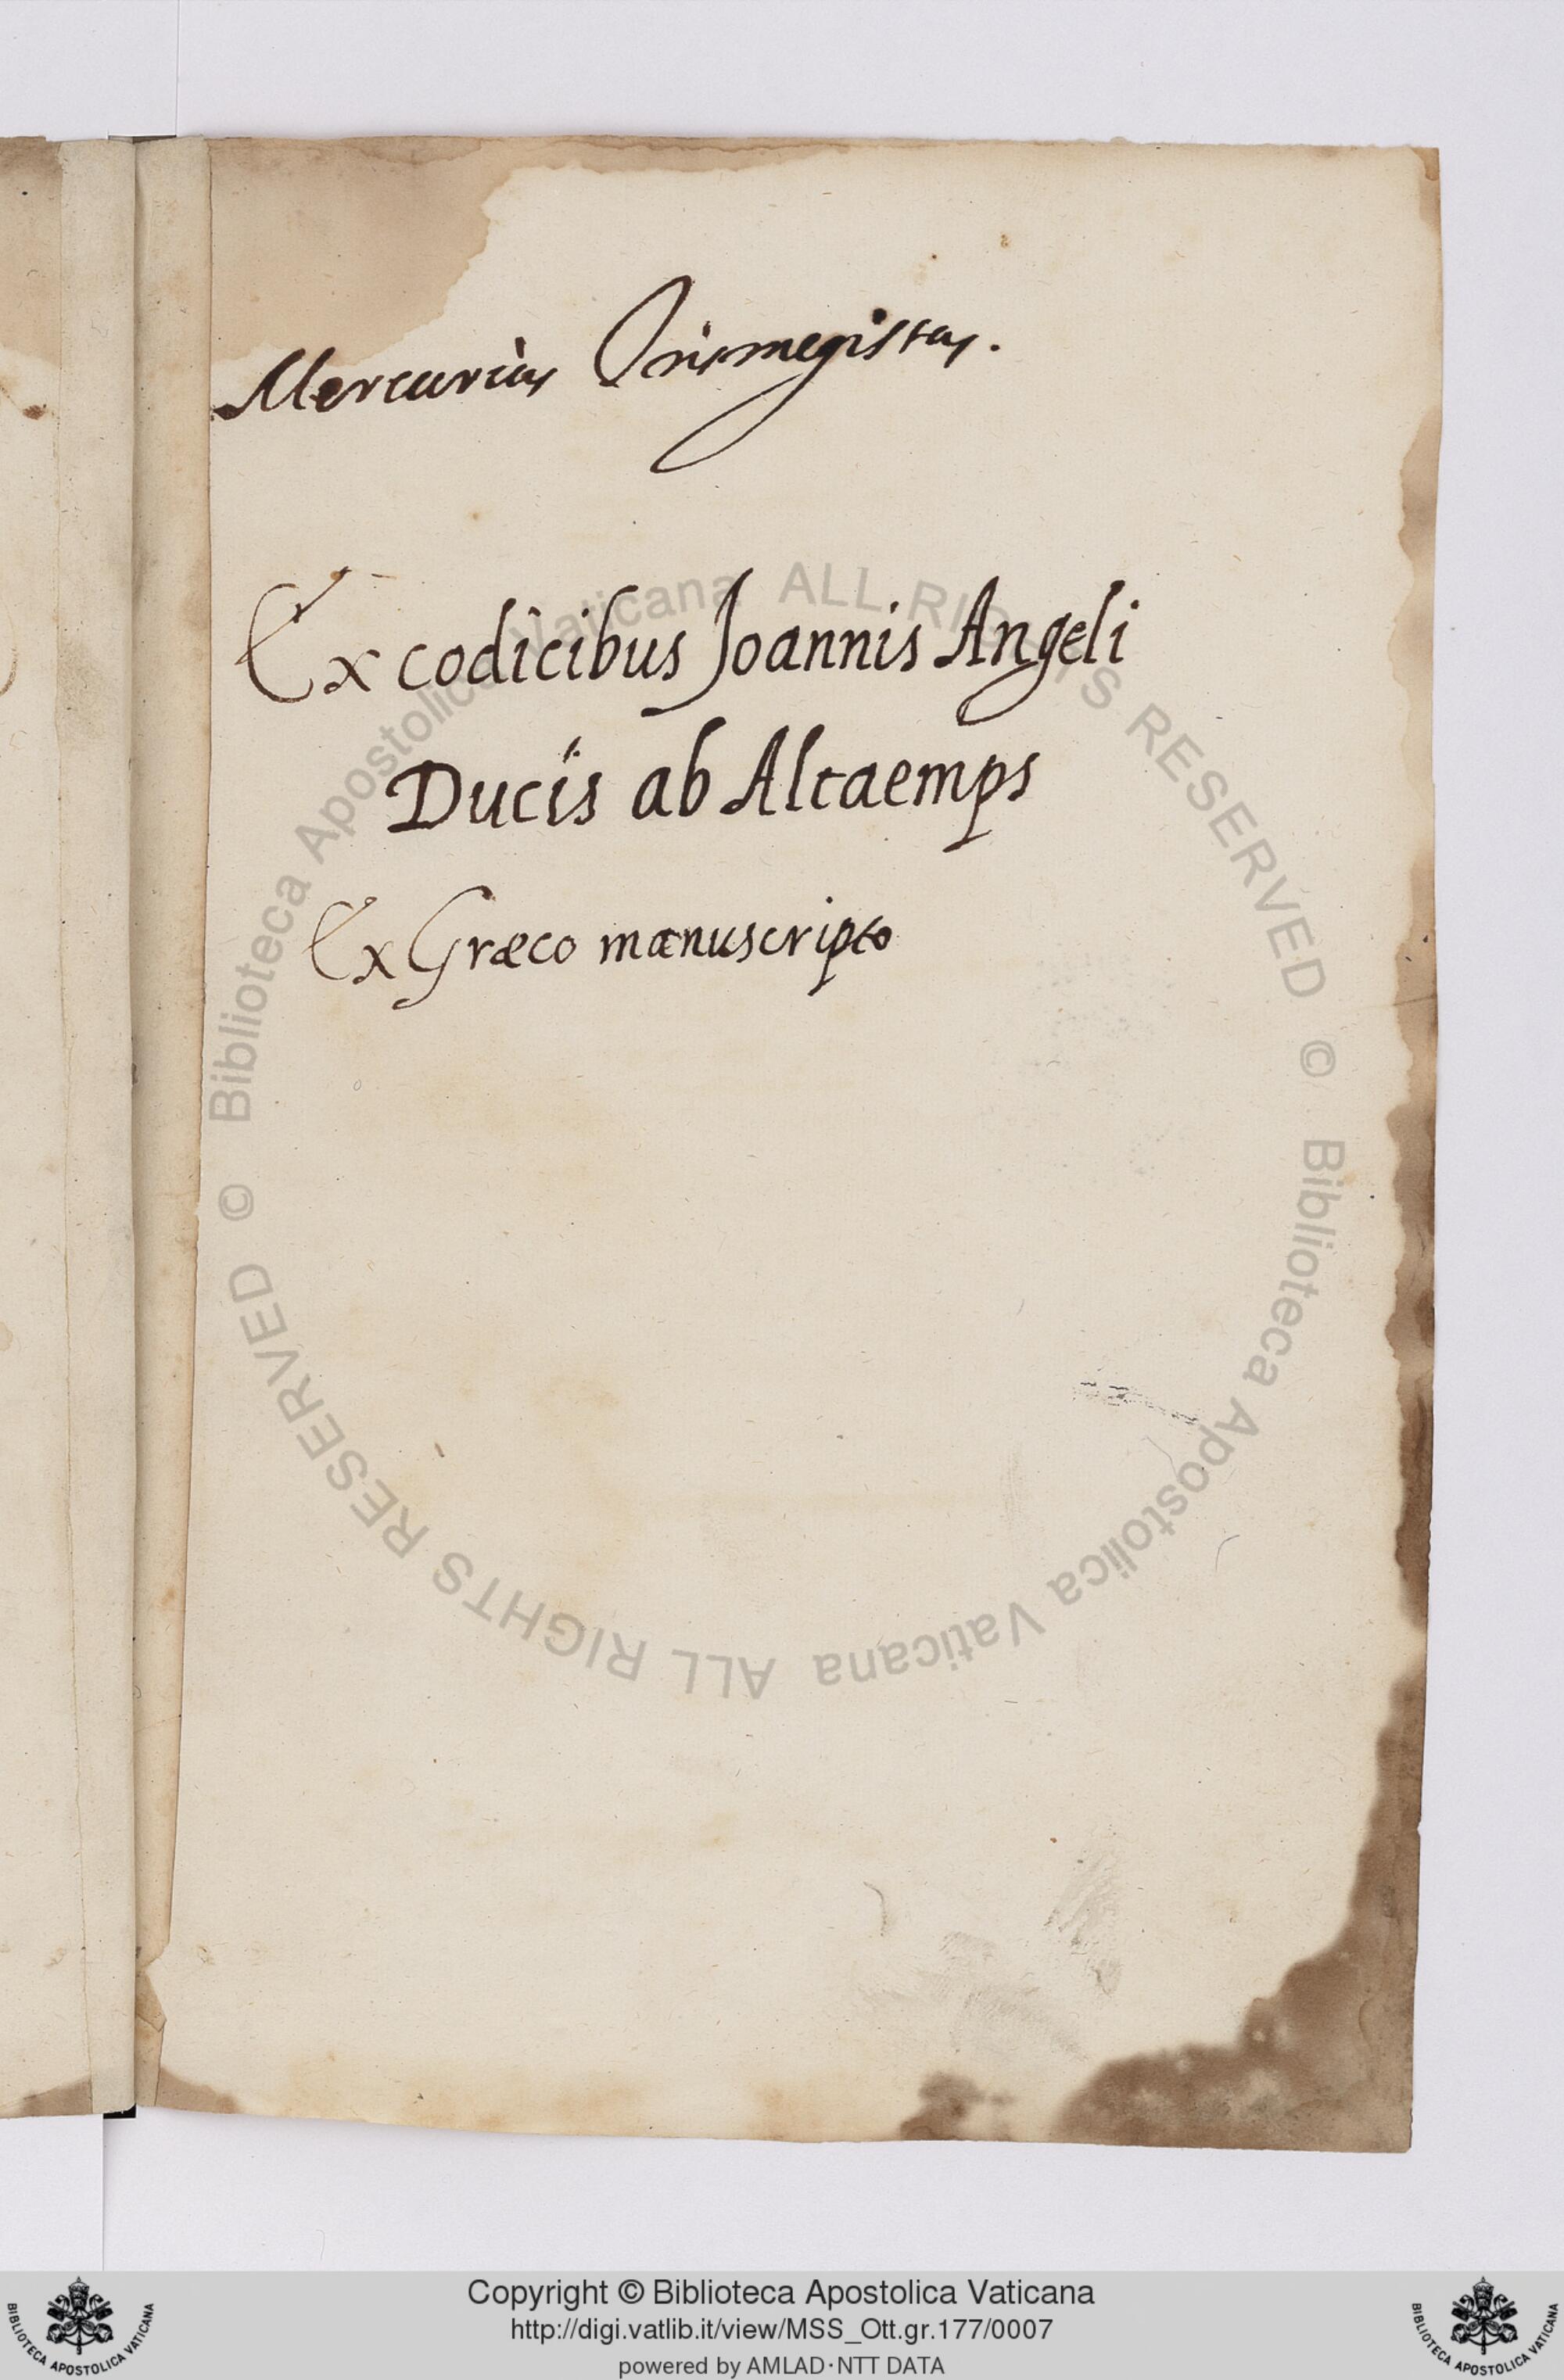 Mercurius Trismegistus.
Ex codicibus Joannis Angeli
Ducis ab Altaemps
Ex Græco manuscripto
© Biblioteca Apostolica Vaticana ALL RIGHTS RESERVED
© Biblioteca Apostolica Vaticana ALL RIGHTS RESERVED
Copyright © Biblioteca Apostolica Vaticana
http://digi.vatlib.it/view/MSS_Ott.gr.177/0007
powered by AMLAD·NTT DATA
BIBLIOTECA APOSTOLICA VATICANA
BIBLIOTECA APOSTOLICA VATICANA